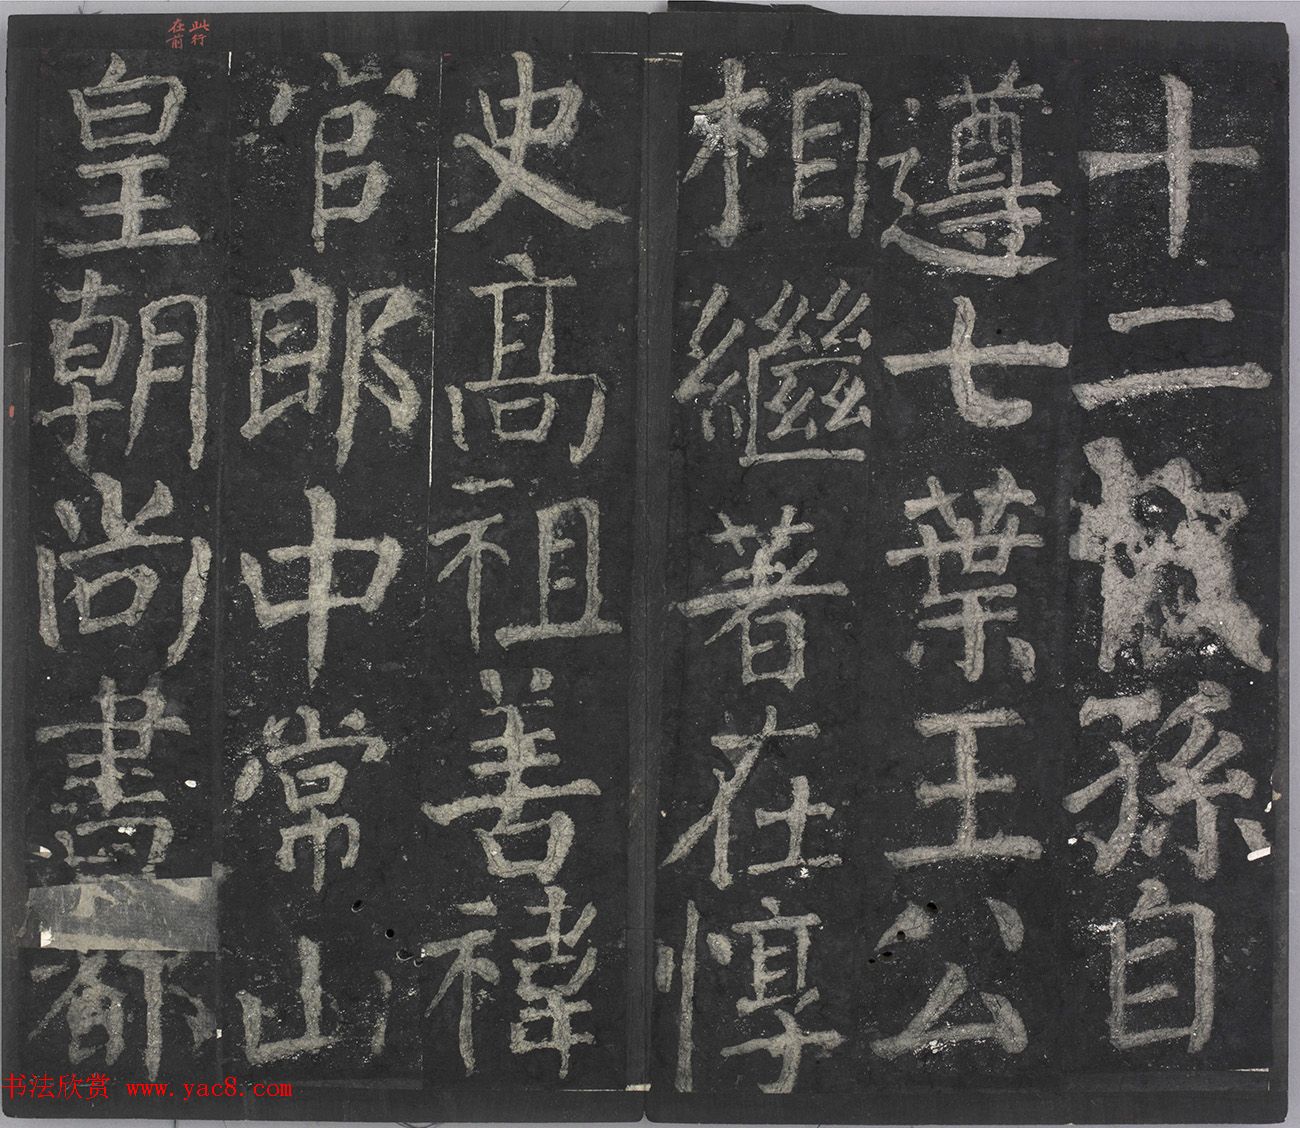 十二代孫自
遵七葉王公
相繼著在惇
史高祖善褘
官郎中常山
皇朝尚書都
此行
在前
书法欣赏 www.yac8.com